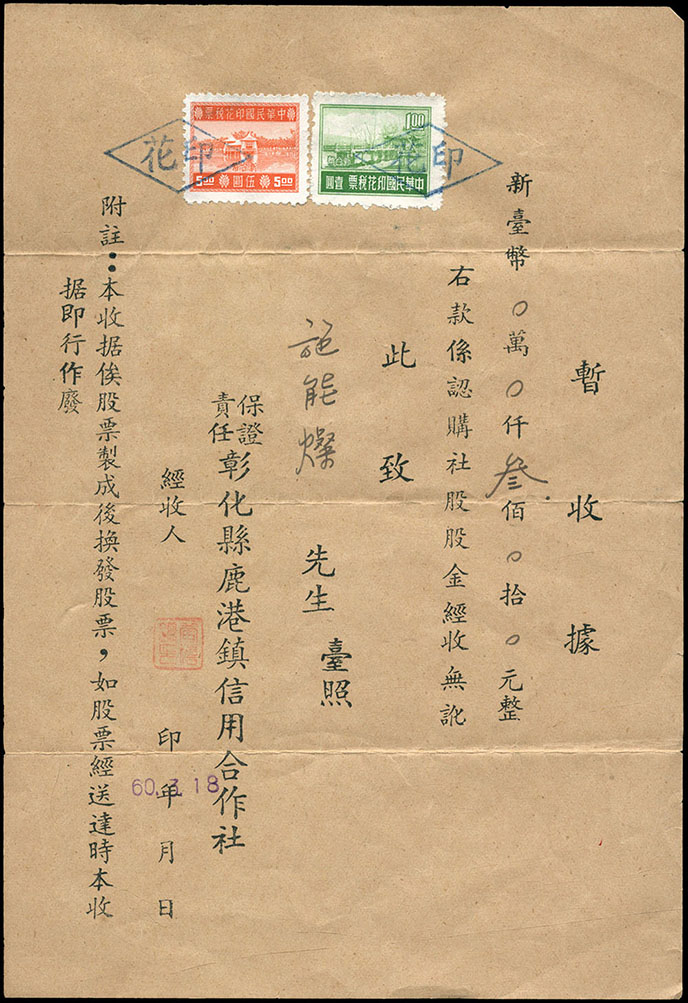 中華民國印花稅票
1.00
中華民國印花稅票 壹圓
5.00 伍圓 5.00
印花
印花
暫收據
新臺幣0萬0仟叁佰0拾0元整
右款係認購社股股金經收無訛
此致
施能燦 先生 臺照
保證責任彰化縣鹿港鎮信用合作社
經收人 印 年 月 日
60. 3. 18
附註：本收据俟股票製成後換發股票，如股票經送達時本收
据即行作廢